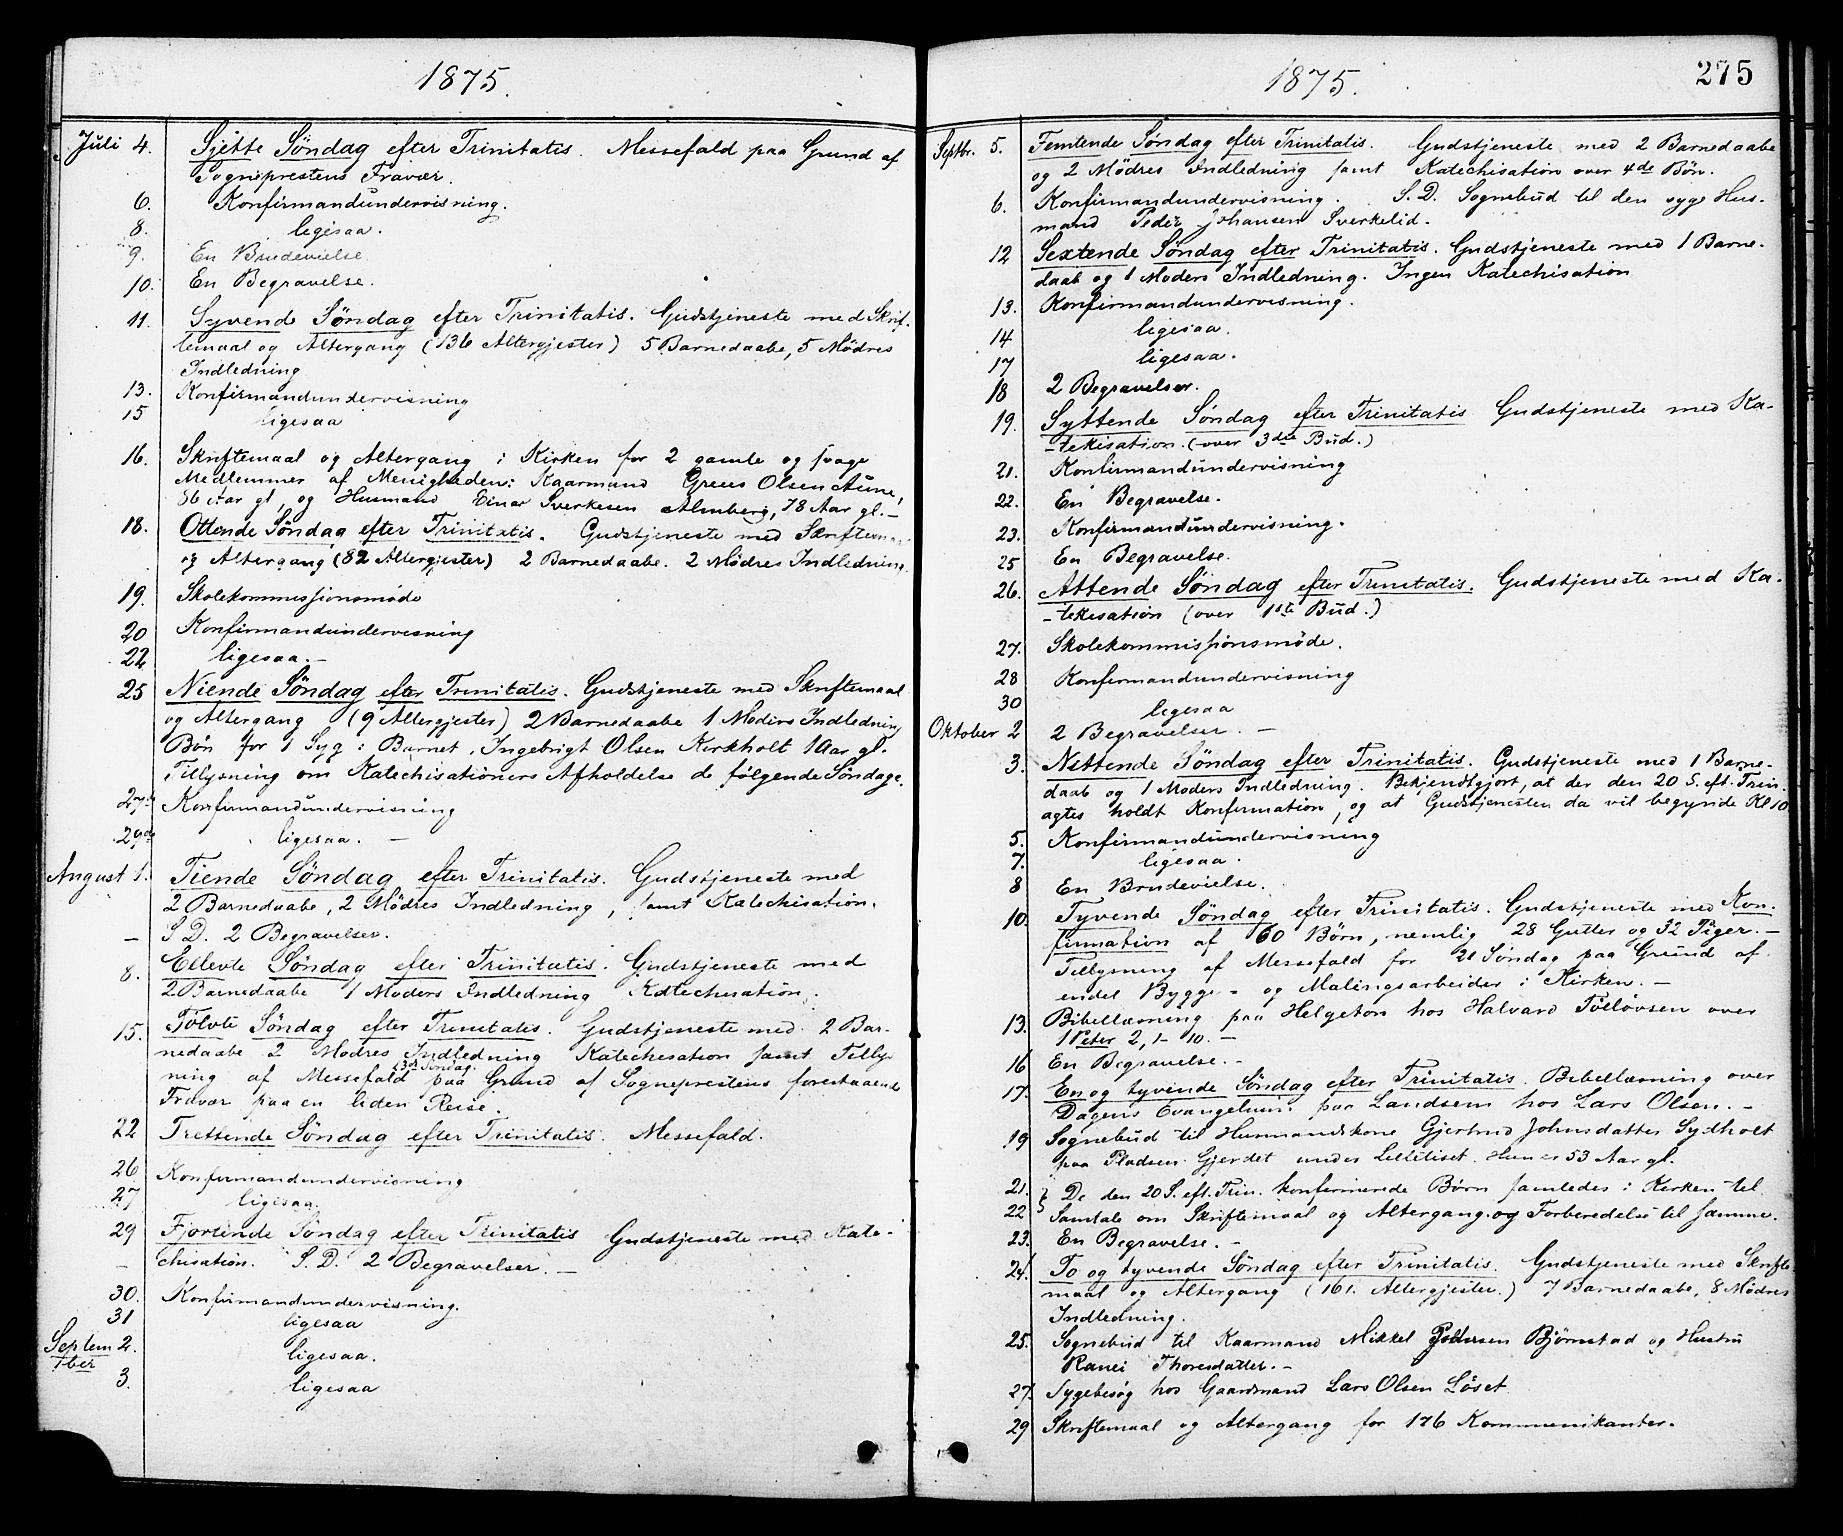 1875.
Juli 4. Sjette Søndag efter Trinitatis. Messefald paa Grund af
Sogneprestens Fravær.
6. Konfirmandundervisning.
8. ligesaa.
9. En Brudevielse.
10. En Begravelse.
11. Syvende Søndag efter Trinitatis. Gudstjeneste med Skrif-
temaal og Altergang (136 Altergjester) 5 Barnedaabe, 5 Mødres
Indledning
13. Konfirmandundervisning
15 ligesaa
16. Skriftemaal og Altergang i Kirken for 2 gamle og svage
Medlemmer af Menigheden: Kaarmand Olsen Aune,
86 Aar gl, og Husmand Einar Sverkesen Almberg, 78 Aar gl. –
18. Ottende Søndag efter Trinitatis. Gudstjeneste med Skriftemaal
og Altergang (82 Altergjester) 2 Barnedaabe. 2 Mødres Indledning.
19. Skolekommissionsmøde
20 Konfirmandundervisning
22 ligesaa. –
25 Niende Søndag efter Trinitatis. Gudstjeneste med Skriftemaal
og Altergang (9 Altergjester) 2 Barnedaabe 1 Moders Indledning
Bøn for 1 Syg: Barnet, Ingebrigt Olsen Kirkholt 1 Aar gl.
Tillysning om Katechisationers Afholdelse de følgende Søndage.
27de Konfirmandundervisning
29de ligesaa. –
August 1. Tiende Søndag efter Trinitatis. Gudstjeneste med
2 Barnedaabe, 2 Mødres Indledning, samt Katechisation.
– S. D. 2 Begravelser.
8. Ellevte Søndag efter Trinitatis. Gudstjeneste med
2 Barnedaabe 1 Moders Indledning Katechisation.
15. Tolvte Søndag efter Trinitatis. Gudstjeneste med 2 Bar-
nedaabe 2 Mødres Indledning Katechisation samt Tilly-
13de Søndag.
ning af Messefald paa Grund af Sogneprestens forestaaende
Fravær paa en liden Reise.
22 Trettende Søndag efter Trinitatis. Messefald.
26 Konfirmandundervisning
27 ligesaa.
29 Fjortende Søndag efter Trinitatis Gudstjeneste med Kate-
– chisation. S. D. 2 Begravelser. –
30. Konfirmandundervisning.
31 ligesaa
Septem 2. ligesaa.
ber
3. ligesaa
1875.
275
Septbr. 5. Femtende Søndag efter Trinitatis. Gudstjeneste med 2 Barnedaabe
og 2 Mødres Indledning samt Katechisation over 4de Bøn.
6. Konfirmandundervisning. S. D. Sognebud til den syge Hus-
mand Peder Johansen Sverkelid.
12 Sextende Søndag efter Trinitatis. Gudstjeneste med 1 Barne-
daab og 1 Moders Indledning. Ingen Katechisation
13. Konfirmandundervisning.
14 ligesaa.
17 ligesaa.
18 2 Begravelser.
19. Syttende Søndag efter Trinitatis Gudstjeneste med Ka-
-tekisation. (over 3die Bud.)
21. Konfirmandundervisning
22. En Begravelse.
23. Konfirmandundervisning.
25 En Begravelse.
26. Attende Søndag efter Trinitatis. Gudstjeneste med Ka-
-tekisation (over 1ste Bud.)
27. Skolekommissionsmøde.
28 Konfirmandundervisning
30 ligesaa
Oktober 2 2 Begravelser. –
3. Nittende Søndag efter Trinitatis. Gudstjeneste med 1 Barne-
daab og 1 Moders Indledning. Bekjendtgjort, at der den 20 S. eft. Trin.
agtes holdt Konfirmation, og at Gudstjenesten da vil begynde Kl 10
5. Konfirmandundervisning
7. ligesaa.
8 En Brudevielse.
10. Tyvende Søndag efter Trinitatis. Gudstjeneste med Kon-
firmation af 60 Børn, nemlig 28 Gutter og 32 Piger. –
Tillysning af Messefald for 21 Søndag paa Grund af
endel Bygge- og Malingsarbeider i Kirken. –
13. Bibellæsning paa Helgeton hos Halvard Tølløvsen over
1 Peter 2, 1-10. –
16 En Begravelse. –
17. En og tyvende Søndag efter Trinitatis. Bibellæsning over
Dagens Evangelium paa Landsem hos Lars Olsen. –
19 Sognebud til Husmandskone Gjertrud Johnsdatter Sydholt
paa Pladsen Gjerdet under Lilletiset. Hun er 53 Aar gl.
21. De den 20 S. eft. Trin. konfirmerede Børn samledes i Kirken til
22 Samtale om Skriftemaal og Altergang og Forberedelse til samme.
23. En Begravelse. –
24. To og tyvende Søndag efter Trinitatis. Gudstjeneste med Skrifte-
maal og Altergang (161. Altergjester.) 7 Barnedaabe, 8 Mødres
Indledning.
25. Sognebud til Kaarmand Mikkel Pedersen Bjørnstad og Hustru
Ranei Thoresdatter. –
27. Sygebesøg hos Gaardmand Lars Olsen Løset
29 Skriftemaal og Altergang for 176 Kommunikanter.